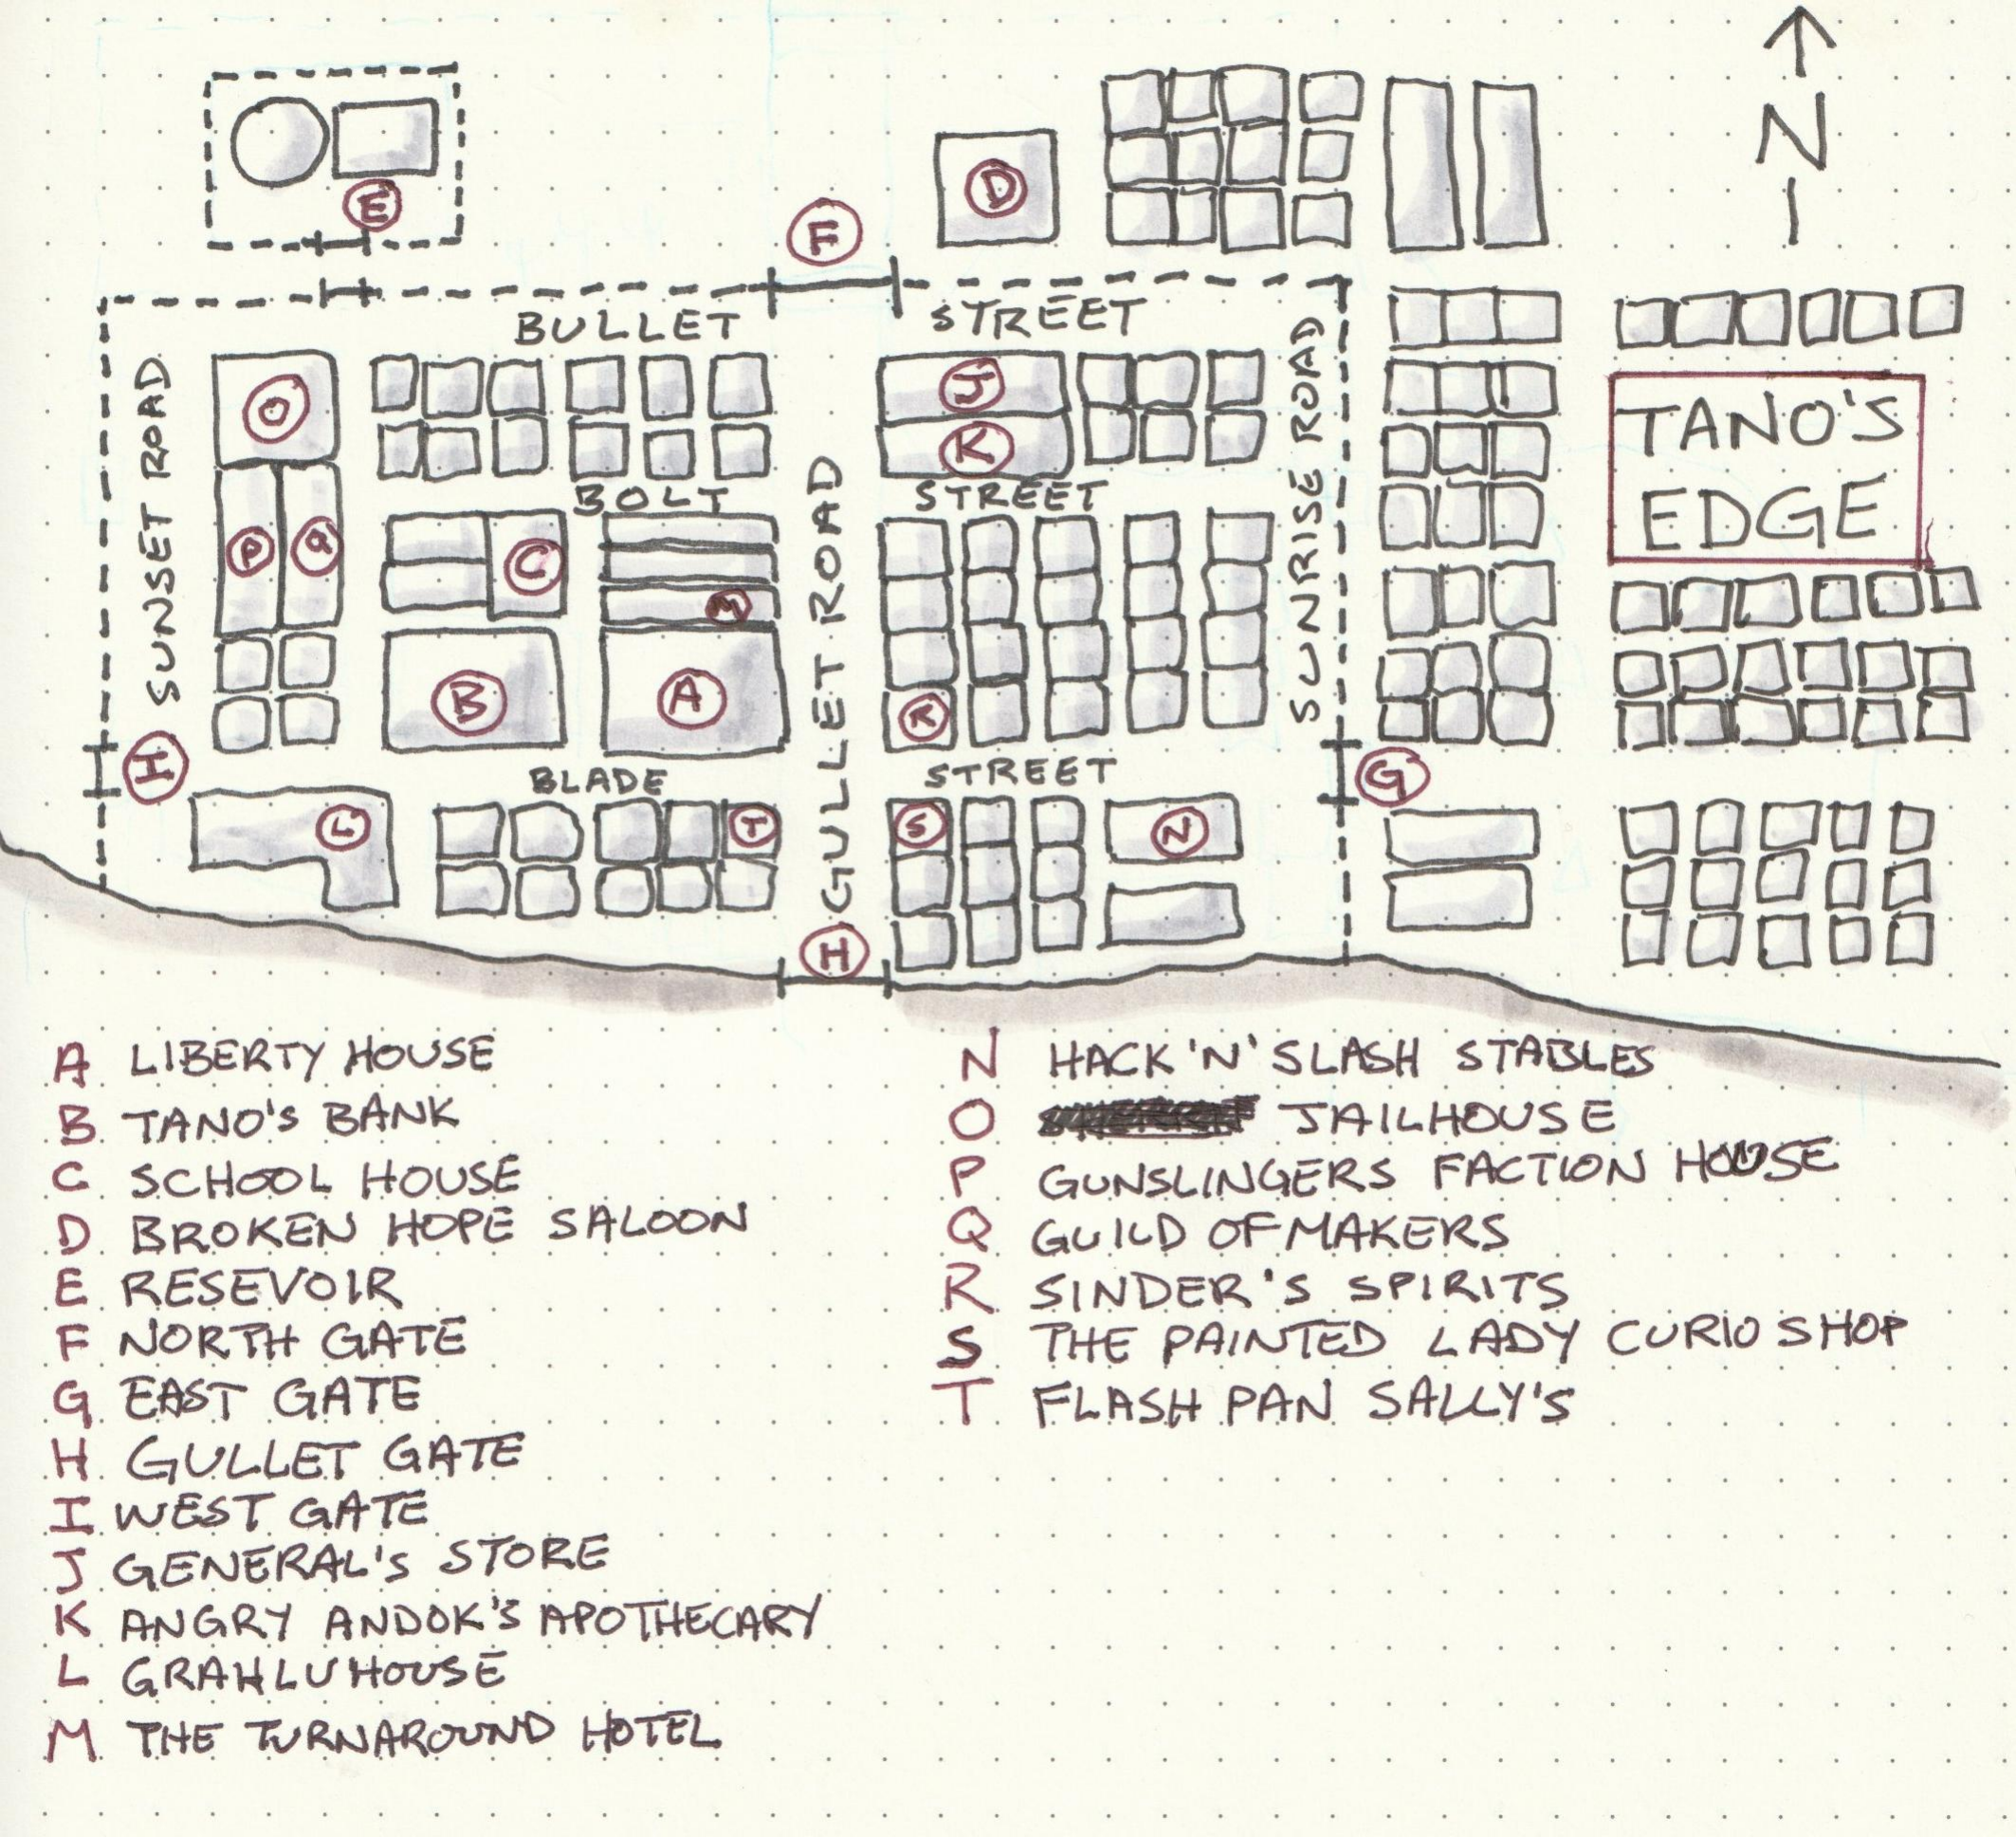 N
E
D
F
BULLET STREET
O
J
K
SUNSET ROAD
SUNRISE ROAD
TANO'S
EDGE
BOLT STREET
P
Q
C
M
GULLET ROAD
B
A
R
I
BLADE STREET
G
L
T
S
N
H
A LIBERTY HOUSE
B TANO'S BANK
C SCHOOL HOUSE
D BROKEN HOPE SALOON
E RESEVOIR
F NORTH GATE
G EAST GATE
H GULLET GATE
I WEST GATE
J GENERAL'S STORE
K ANGRY ANDOK'S APOTHECARY
L GRAHLUHOUSE
M THE TURNAROUND HOTEL
N HACK 'N' SLASH STABLES
O JAILHOUSE
P GUNSLINGERS FACTION HOUSE
Q GUILD OF MAKERS
R SINDER'S SPIRITS
S THE PAINTED LADY CURIO SHOP
T FLASH PAN SALLY'S